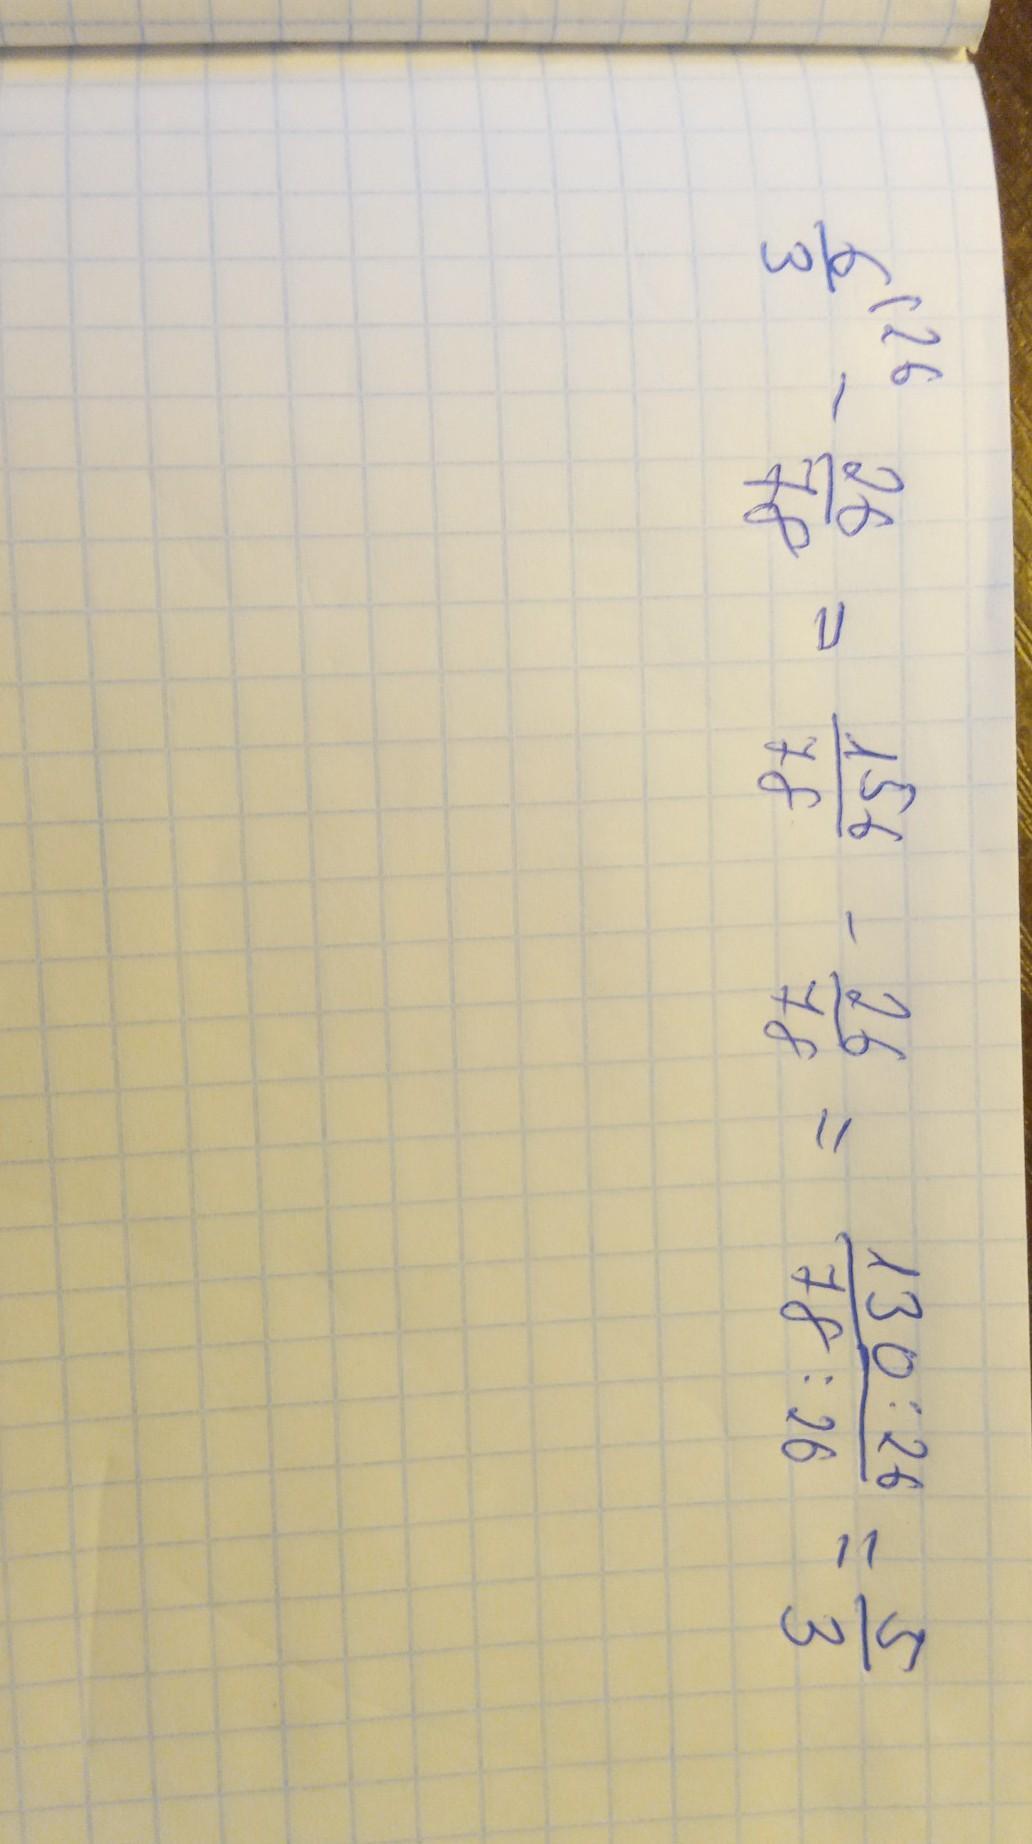 6/3 (26 - 26/78 = 156/78 - 26/78 = 130:26/78:26 = 5/3